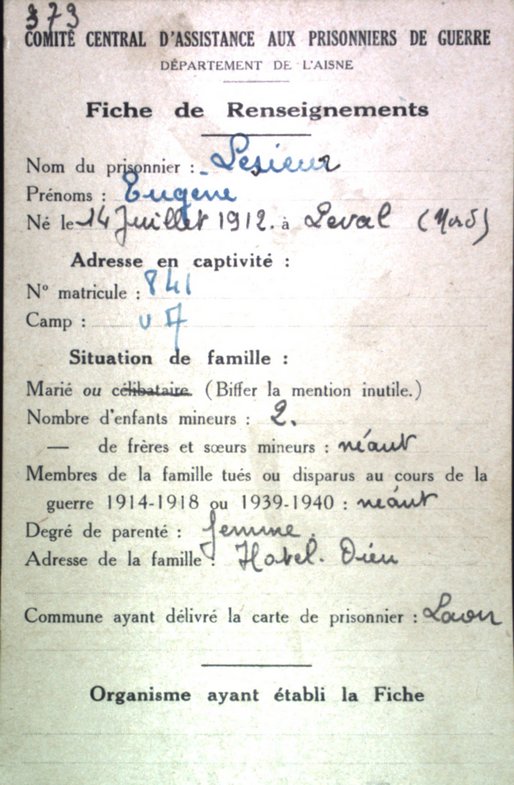 373
COMITÉ CENTRAL D'ASSISTANCE AUX PRISONNIERS DE GUERRE
DÉPARTEMENT DE L'AISNE
Fiche de Renseignements
Nom du prisonnier : Lesieur
Prénoms : Eugène
Né le 14 Juillet 1912. à Leval (Nord)
Adresse en captivité :
N° matricule : 841
Camp : V A
Situation de famille :
Marié ou célibataire. (Biffer la mention inutile.)
Nombre d'enfants mineurs : 2.
— de frères et sœurs mineurs : néant
Membres de la famille tués ou disparus au cours de la
guerre 1914-1918 ou 1939-1940 : néant
Degré de parenté : femme.
Adresse de la famille : Hotel. Dieu
Commune ayant délivré la carte de prisonnier : Laon
Organisme ayant établi la Fiche